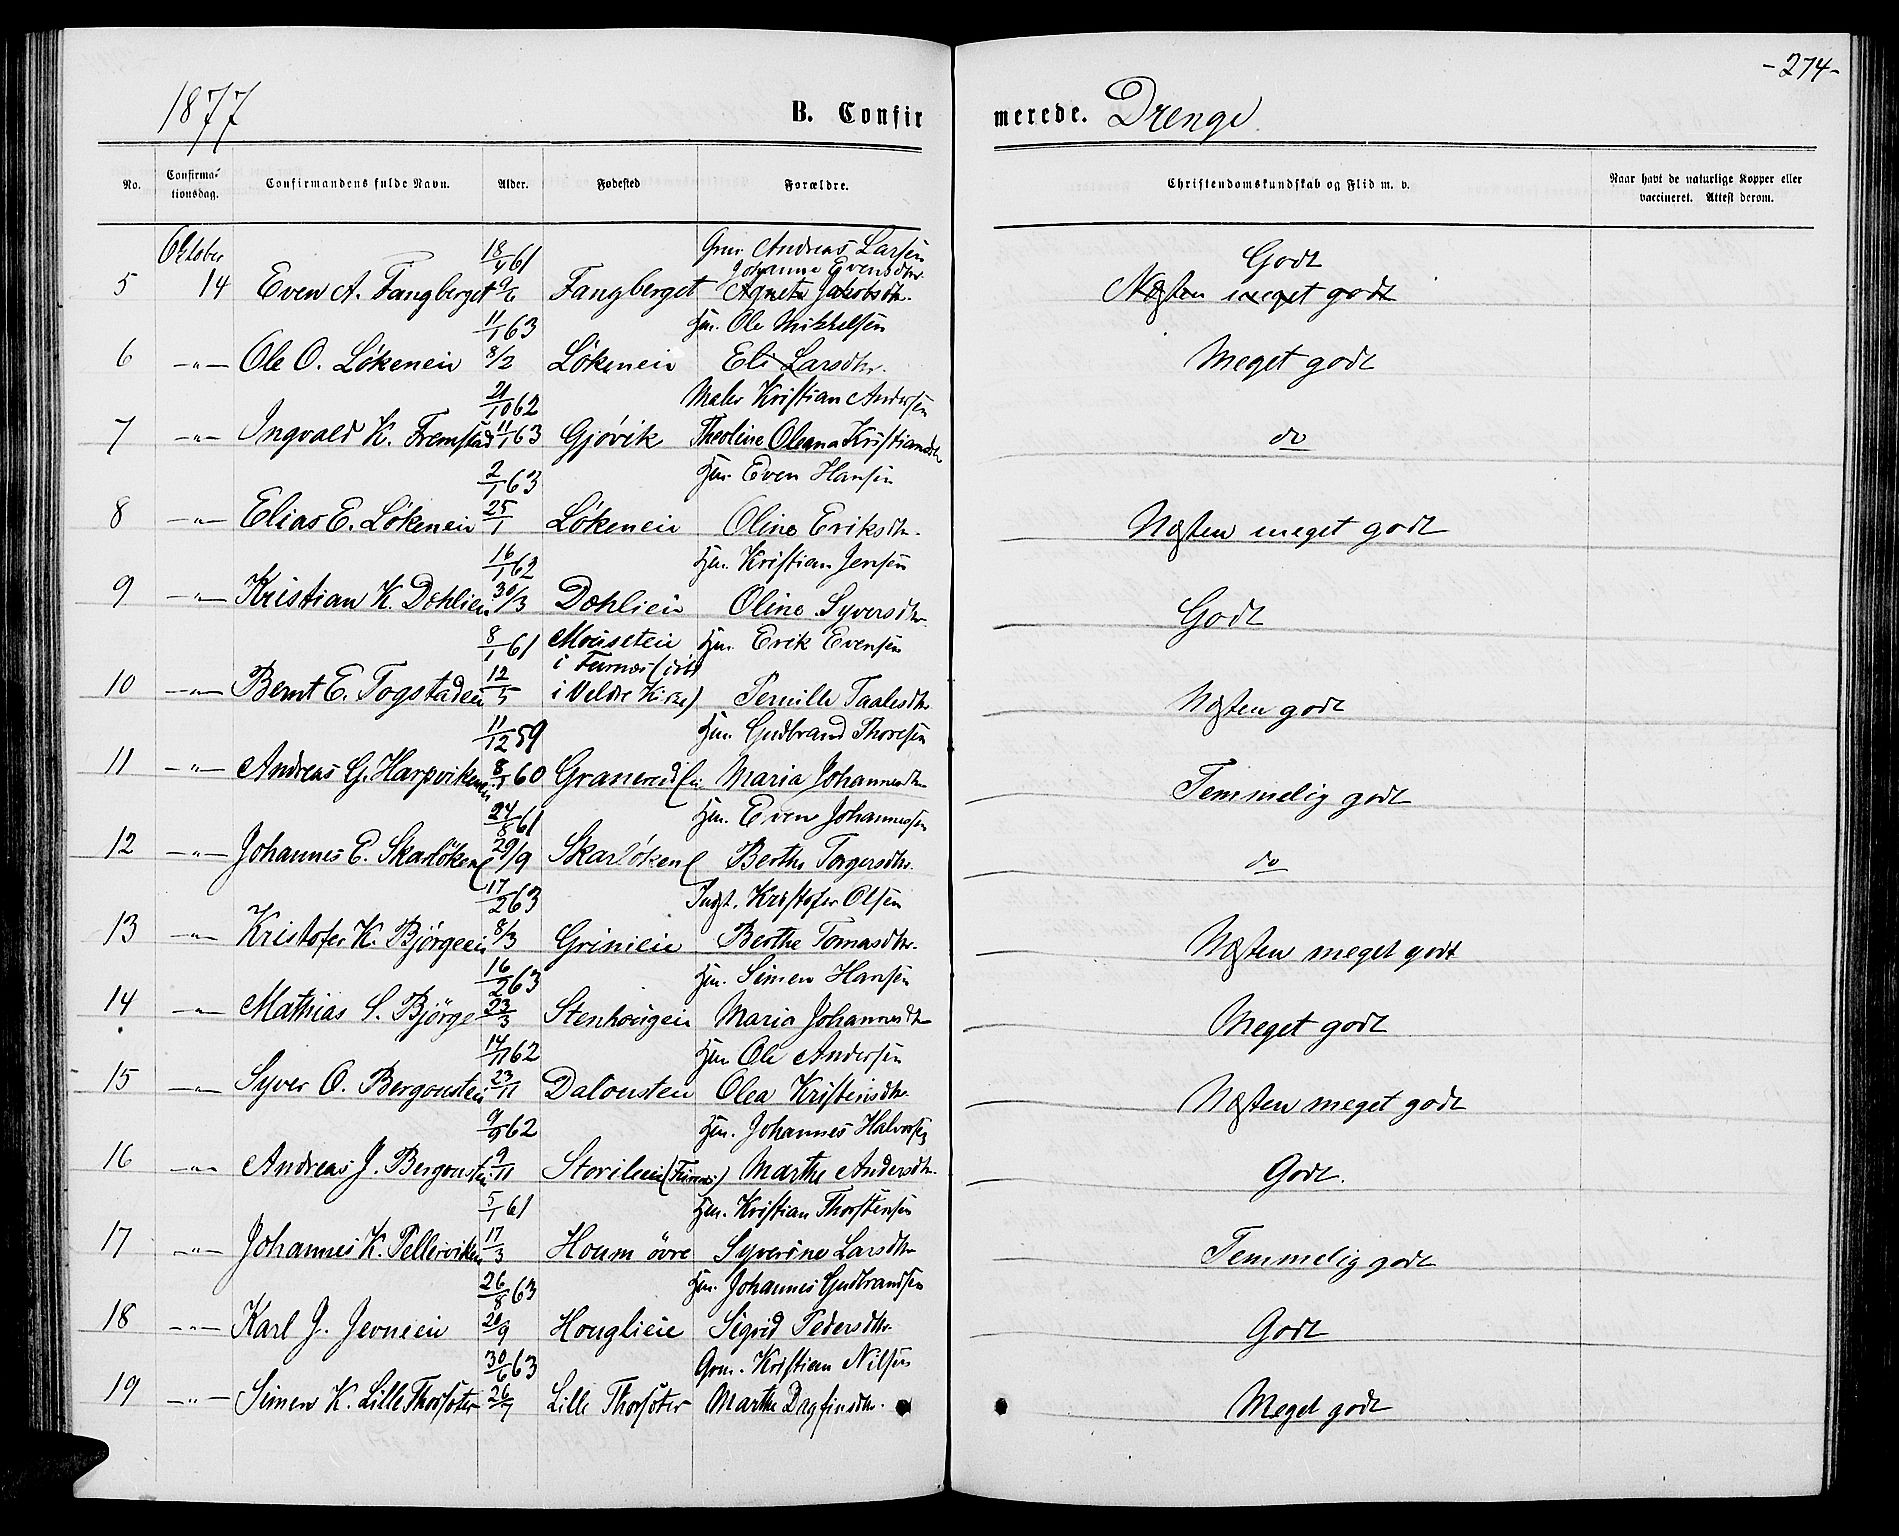 -274-
1877
B. Confirmerede. Drenge
No.
Confirmationsdag.
Confirmandens fulde Navn.
Alder.
Fødested
Forældre.
Christendomskundskab og Flid m. v.
Naar havt de naturlige Kopper eller
vaccineret. Attest derom.
Oktober 18/4 61 Grm. Andreas Larsen Godt
Johanne Evensdtr.
5 14 Even A. Fangberget 9/6 Fangberget Agnete Jakobsdtr. Næsten meget godt
11/1 63 Hm. Ole Mikkelsen
6 -"- Ole O. Lökeneie 8/2 Lökeneie Eli Larsdtr. Meget godt
21/10 62 Maler Kristian Andersen
7 -"- Ingvald K. Fremstad 11/1 63 Gjövik Theoline Oleana Kristiansdtr do
2/1 63 Hm. Even Hansen
8 -"- Elias E. Lökeneie 25/1 Lökeneie Oline Eriksdtr. Næsten meget godt
16/1 62 Hm. Kristian Jensen
9 -"- Kristian K. Dæhlien 30/3 Dæhlieie Oline Syversdtr. Godt
8/1 61 Hm. Erik Evensen
i Furnes (döbt
10 -"- Bernt E. Togstadeie 12/5 i Veldre Kirke) Pernille Taalesdtr Næsten godt
11/12 59 Hm. Gudbrand Thoresen
11 -"- Andreas G. Harpvikeneie 8/1 60 Granerud Maria Johannesdtr Temmelig godt
24/8 61 Hm. Even Johannesen
12 -"- Johannes E. Skarlöken 29/9 Skarlöken Berthe Torgersdtr. do
17/2 63 Kristofer Olsen
13 -"- Kristofer K. Björgeeie 8/3 Grinieie Berthe Tomasdtr. Næsten meget godt
16/2 63 Hm. Simen Hansen
14 -"- Mathias S. Björge 23/3 Stenhougeie Maria Johannesdtr Meget godt
14/11 62 Hm Ole Andersen
15 -"- Syver O. Bergousteie 23/11 Dalousten Olea Kristensdtr Næsten meget godt
9/9 62 Hm. Johannes Halvorsen
16 -"- Andreas J. Bergousteie 9/11 Storilieie (Furnes) Marthe Andersdtr. Godt.
5/1 61 Hm. Kristian Thorstensen
17 -"- Johannes K. Pelleviken 17/3 Houm övre Syverine Larsdtr Temmelig godt
26/8 63 Hm. Johannes Gudbrandsen
18 -"- Karl J. Jevneeie 20/9 Houglieie Sigrid Pedersdtr. Godt
30/6 63 Grm. Kristian Nilsen
19 -"- Simen K. Lille Thorsöter 26/7 Lille Thorsöter Marthe Dagfinsdtr. Meget godt